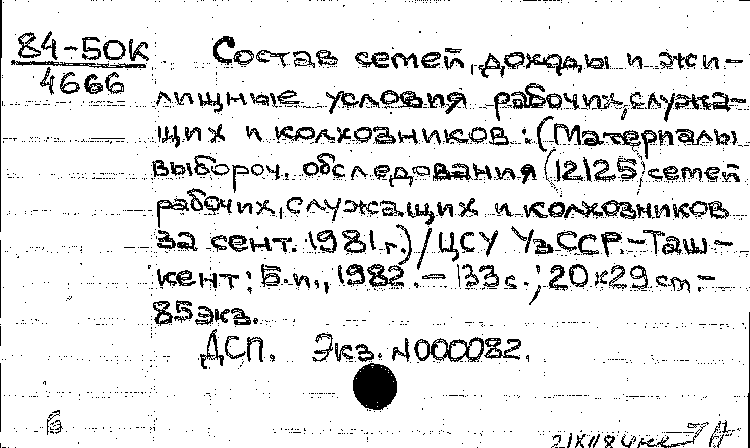 84-50к
4666
Состав семей, доходы и жи-
лищные условия рабочих, служа-
щих и колхозников: (Материалы
выбороч. обследования (12125) семей
рабочих, служащих и колхозников
за сент. 1981 г.) / ЦСУ УзССР. - Таш-
кент: Б.и., 1982. - 133 с.; 20×29 см. -
85 экз.
ДСП. Экз. N000082.
Б